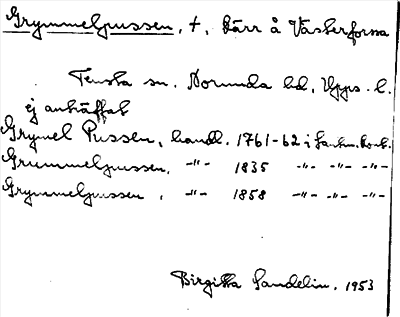 Grymmelpussen, +, kärr å Västerforsa
Tensta sn. Norunda hd, Upps. l.
ej anträffat
Grymel Pussen, handl. 1761-62 i Lantm.kont.
Grummelpussen, -"- 1835 -"- -"- -"-
Grymmelpussen, -"- 1858 -"- -"- -"-
Birgitta Sandelin. 1953